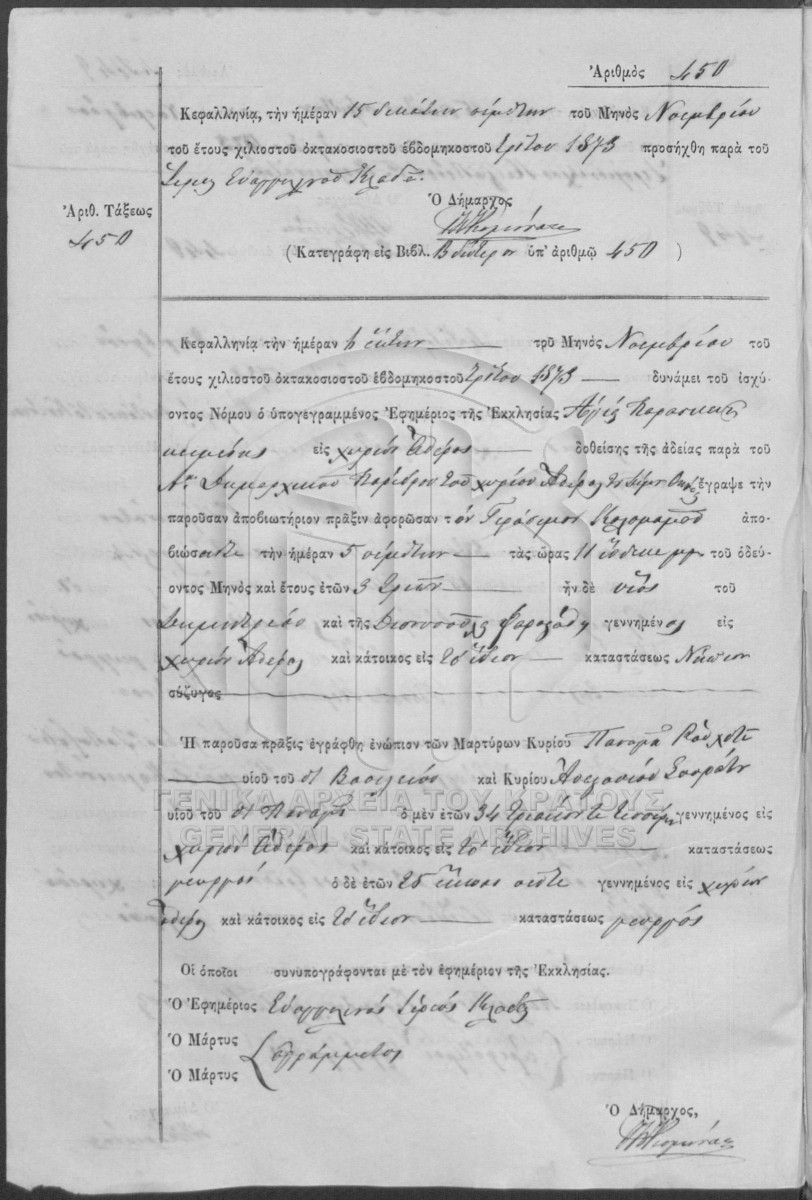 Ἀριθμὸς 450
Κεφαλληνίᾳ, τὴν ἡμέραν 15 δεκάτην πέμπτην τοῦ Μηνὸς Νοεμβρίου
τοῦ ἔτους χιλιοστοῦ ὀκτακοσιοστοῦ ἑβδομηκοστοῦ τρίτου 1873 προσήχθη παρὰ τοῦ
Ἱερέως Εὐαγγελινοῦ Κλαδᾶ
Ὁ Δήμαρχος
Ἀριθ. Τάξεως
450
(Κατεγράφη εἰς Βιβλ. Β δεύτερον ὑπ' ἀριθμῷ 450)
Κεφαλληνίᾳ τὴν ἡμέραν 6 ἕκτην τοῦ Μηνὸς Νοεμβρίου τοῦ
ἔτους χιλιοστοῦ ὀκτακοσιοστοῦ ἑβδομηκοστοῦ τρίτου 1873 δυνάμει τοῦ ἰσχύ-
οντος Νόμου ὁ ὑπογεγραμμένος Ἐφημέριος τῆς Ἐκκλησίας Ἁγίας Παρασκευῆς
κειμένης εἰς χωρίον Ἀθέρας δοθείσης τῆς ἀδείας παρὰ τοῦ
Δημαρχικοῦ Παρέδρου τοῦ χωρίου Ἀθέρας ἔγραψε τὴν
παροῦσαν ἀποβιωτήριον πρᾶξιν ἀφορῶσαν τὸν Γεράσιμον ἀπο-
βιώσαντα τὴν ἡμέραν 5 πέμπτην τὰς ὥρας 11 ἕνδεκα μμ τοῦ ὁδεύ-
οντος Μηνὸς καὶ ἔτους ἐτῶν 3 τριῶν ἦν δὲ υἱὸς τοῦ
Δημητρίου καὶ τῆς Διονυσούλας γεννημένος εἰς
χωρίον Ἀθέρας καὶ κάτοικος εἰς τὸ ἴδιον καταστάσεως Νήπιον
σύζυγος
Ἡ παροῦσα πρᾶξις ἐγράφθη ἐνώπιον τῶν Μαρτύρων Κυρίου Παναγῆ
υἱοῦ τοῦ Βασιλείου καὶ Κυρίου Ἀθανασίου
υἱοῦ τοῦ Παναγῆ ὁ μὲν ἐτῶν 34 τριάκοντα τεσσάρων γεννημένος εἰς
χωρίον Ἀθέρας καὶ κάτοικος εἰς τὸ ἴδιον καταστάσεως
γεωργὸς ὁ δὲ ἐτῶν 25 εἴκοσι πέντε γεννημένος εἰς χωρίον
Ἀθέρας καὶ κάτοικος εἰς τὸ ἴδιον καταστάσεως γεωργὸς
Οἱ ὁποῖοι συνυπογράφονται μὲ τὸν ἐφημέριον τῆς Ἐκκλησίας.
Ὁ Ἐφημέριος Εὐαγγελινὸς Ἱερεὺς Κλαδᾶς
Ὁ Μάρτυς
ἀγράμματος
Ὁ Μάρτυς
Ὁ Δήμαρχος,
ΓΕΝΙΚΑ ΑΡΧΕΙΑ ΤΟΥ ΚΡΑΤΟΥΣ
GENERAL STATE ARCHIVES